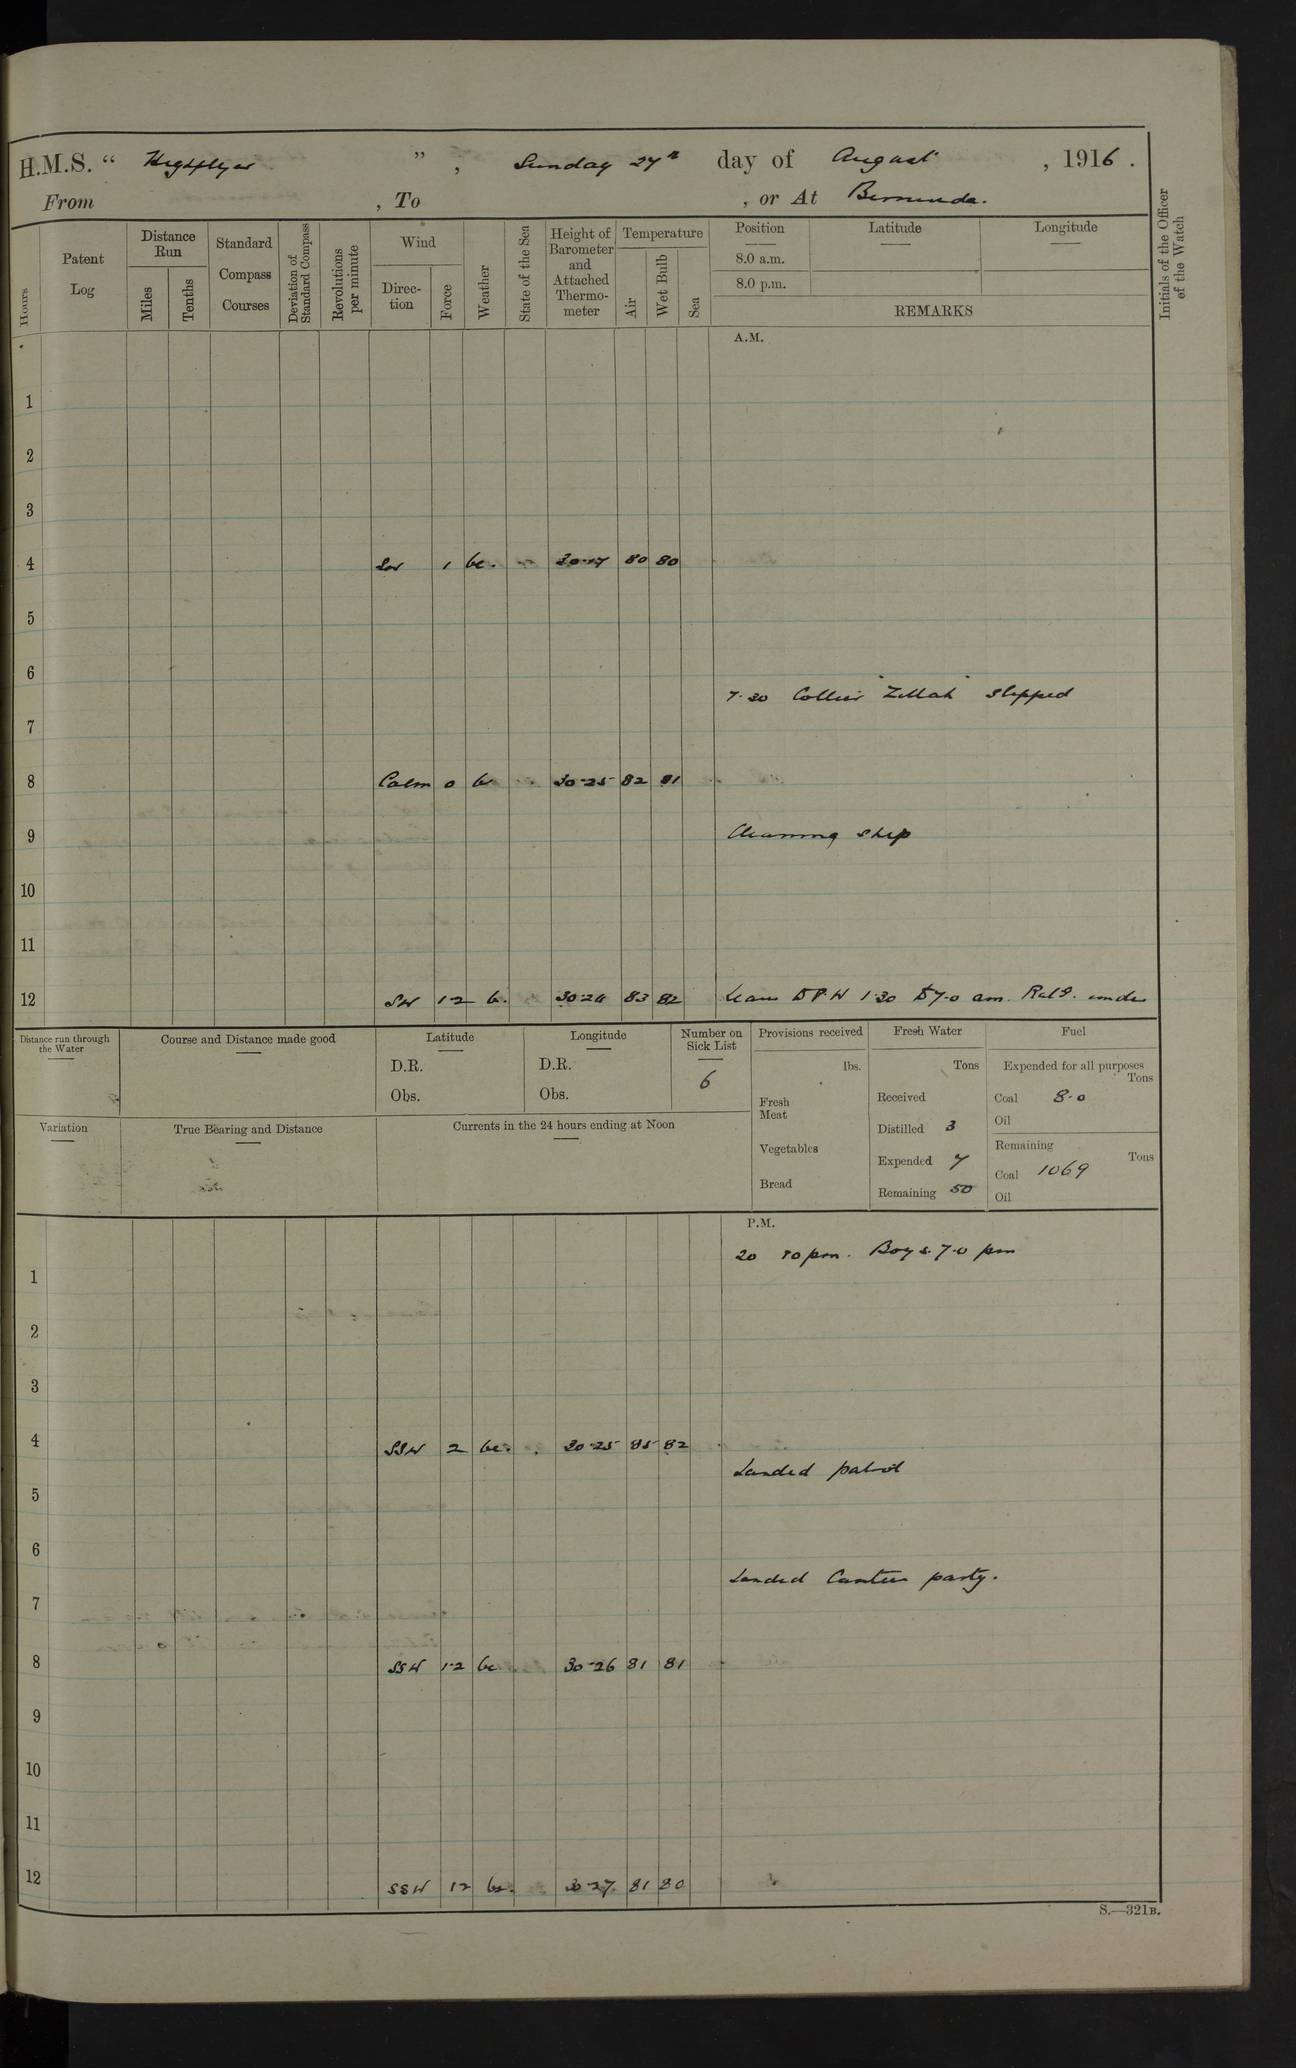 H.M.S. “ Highflyer ” , Sunday 27th day of August , 1916 .
From , To , or At Bermuda.
Hours
Patent Log
Distance Run
Miles
Tenths
Standard Compass Courses
Deviation of Standard Compass
Revolutions per minute
Wind
Direction
Force
Weather
State of the Sea
Height of Barometer and Attached Thermometer
Temperature
Air
Wet Bulb
Sea
Position
8.0 a.m.
8.0 p.m.
Latitude
Longitude
REMARKS
Initials of the Officer of the Watch
A.M.
1
2
3
4 SW 1 bc. 30.17 80 80
5
6
7.30 Collier "Zillah" slipped
7
8 Calm 0 bc 30.25 82 81
9 Cleaning ship
10
11
12 SW 1-2 bc. 30.26 83 82 Leave 1.30 7.0 am.
Distance run through the Water
Course and Distance made good
Latitude
D.R.
Obs.
Longitude
D.R.
Obs.
Number on Sick List
6
Provisions received
lbs.
Fresh Meat
Vegetables
Bread
Fresh Water
Tons
Received
Distilled 3
Expended 7
Remaining 50
Fuel
Expended for all purposes
Tons
Coal 8.0
Oil
Remaining
Tons
Coal 1069
Oil
Variation
True Bearing and Distance
Currents in the 24 hours ending at Noon
P.M.
20 pm. Boys 7.0 pm
1
2
3
4 SSW 2 bc. 30.25 85 82
Landed patrol
5
6
Landed Canteen party.
7
8 SSW 1-2 bc 30.26 81 81
9
10
11
12 SSW 12 bc. 30.27 81 80
S.—321B.